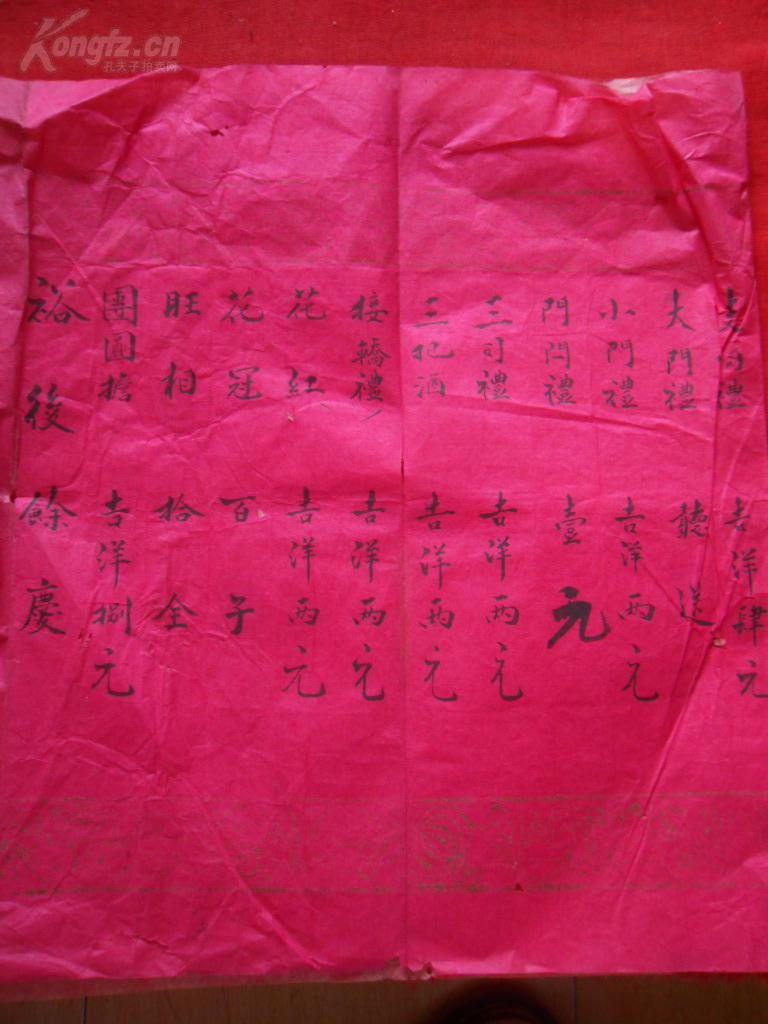 Kongfz.cn
孔夫子拍卖网
禮 吉洋肆元
大門禮 聽送
小門禮 吉洋兩元
門閂禮 壹元
三司禮 吉洋兩元
三把酒 吉洋兩元
接轎禮 吉洋兩元
花紅 吉洋兩元
花冠 百子
旺相 拾全
團圓擔 吉洋捌元
裕後餘慶